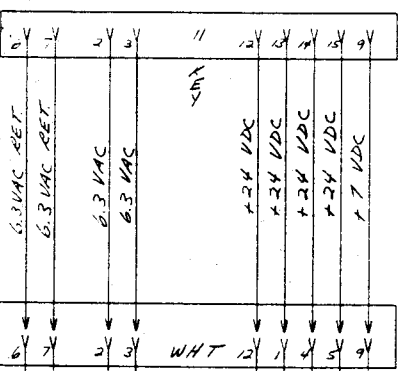 6 7 2 3 11 12 13 14 15 9
KEY
6.3 VAC RET.
6.3 VAC RET.
6.3 VAC
6.3 VAC
+24 VDC
+24 VDC
+24 VDC
+24 VDC
+7 VDC
6 7 2 3 WHT 12 1 4 5 9